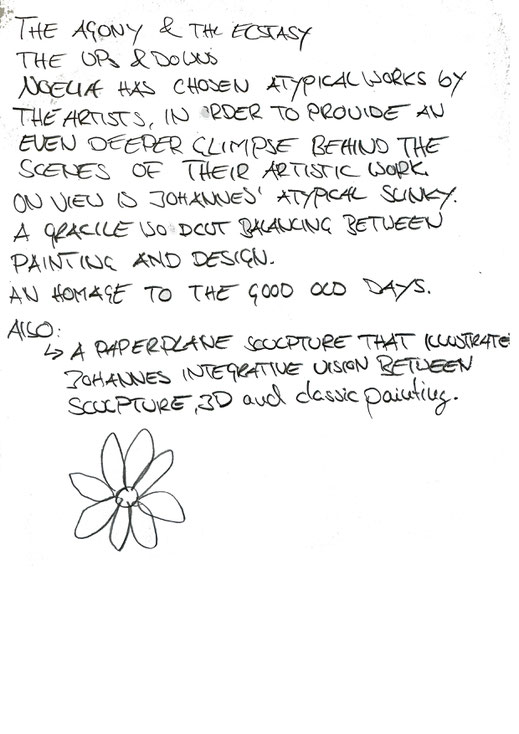 THE AGONY & THE ECSTASY
THE UPS & DOWNS
NOELIA HAS CHOSEN ATYPICAL WORKS BY
THE ARTISTS, IN ORDER TO PROVIDE AN
EVEN DEEPER GLIMPSE BEHIND THE
SCENES OF THEIR ARTISTIC WORK.
ON VIEW IS JOHANNES' ATYPICAL SLINKY.
A GRACILE WOODCUT BALANCING BETWEEN
PAINTING AND DESIGN.
AN HOMAGE TO THE GOOD OLD DAYS.
ALSO:
↳ A PAPERPLANE SCULPTURE THAT ILLUSTRATE
JOHANNES INTEGRATIVE VISION BETWEEN
SCULPTURE, 3D and classic painting.